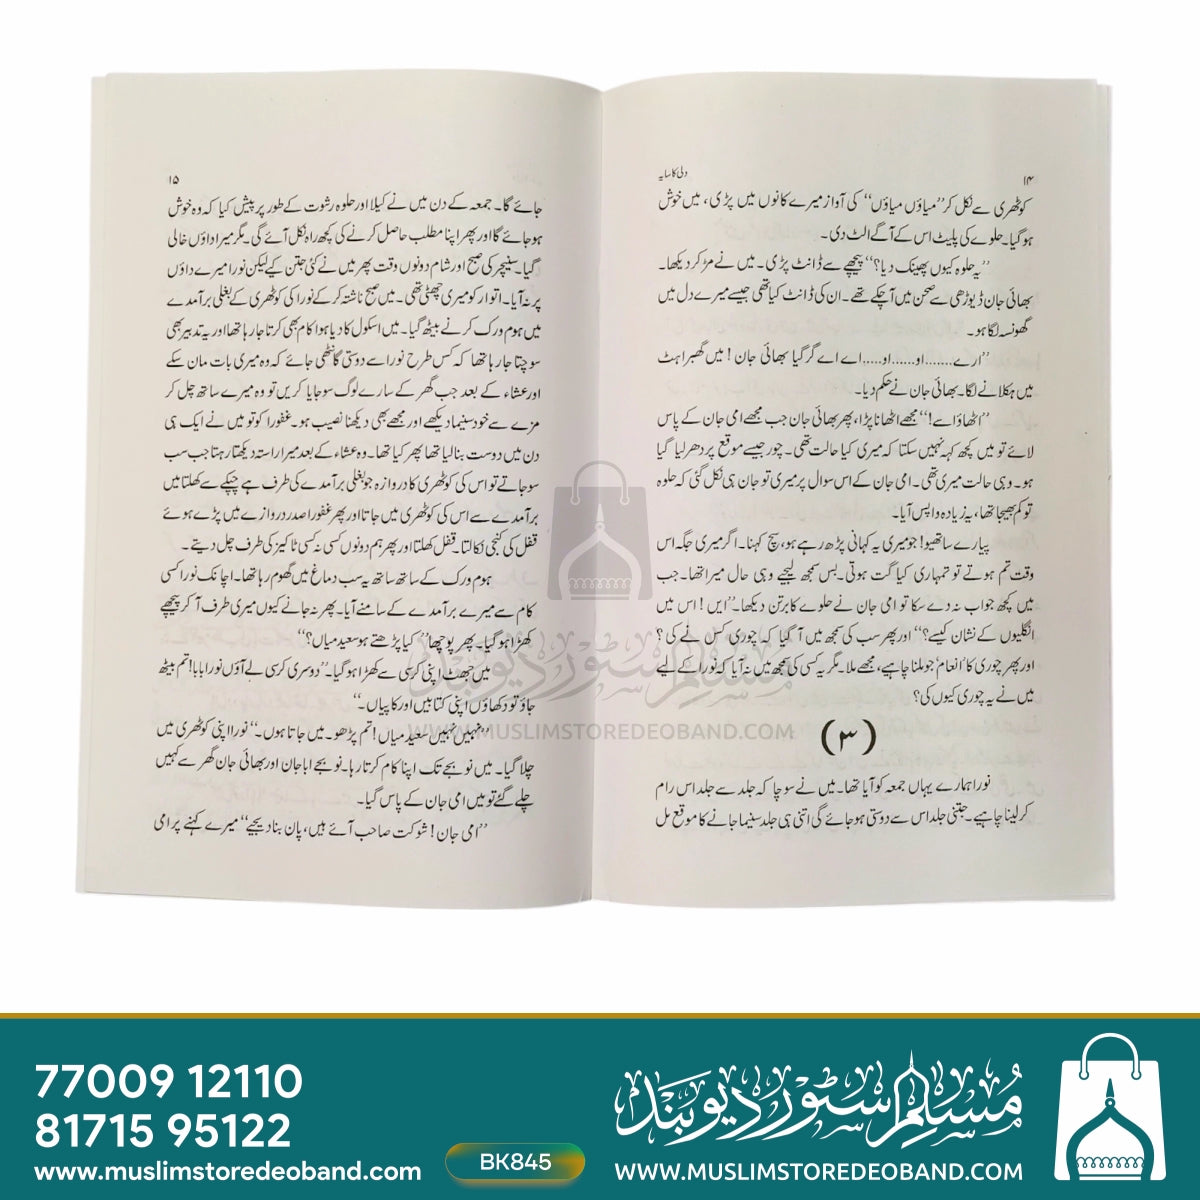 ۱۴
ولی کا سایہ
کوٹھری سے نکل کر ”میاؤں میاؤں“ کی آواز میرے کانوں میں پڑی، میں خوش
ہوگیا۔ حلوے کی پلیٹ اس کے آگے الٹ دی۔
”یہ حلوہ کیوں پھینک دیا؟“ پیچھے سے ڈانٹ پڑی۔ میں نے مڑ کر دیکھا۔
بھائی جان ڈیوڑھی سے صحن میں آچکے تھے۔ ان کی ڈانٹ کیا تھی جیسے میرے دل میں
گھونسہ لگا ہو۔
”ارے........ او......او.....اے اے گر گیا بھائی جان! میں گھبراہٹ
میں ہکلانے لگا۔ بھائی جان نے حکم دیا۔
”اٹھاؤ اسے!“ مجھے اٹھانا پڑا، پھر بھائی جان جب مجھے امی جان کے پاس
لائے تو میں کچھ کہہ نہیں سکتا کہ میری کیا حالت تھی۔ چور جیسے موقع پر دھر لیا گیا
ہو۔ وہی حالت میری تھی۔ امی جان کے اس سوال پر میری تو جان ہی نکل گئی کہ حلوہ
تو کم بھیجا تھا، یہ زیادہ واپس آیا۔
پیارے ساتھیو! جو میری یہ کہانی پڑھ رہے ہو، سچ کہنا۔ اگر میری جگہ اس
وقت تم ہوتے تو تمہاری کیا گت ہوتی۔ بس سمجھ لیجیے وہی حال میرا تھا۔ جب
میں کچھ جواب نہ دے سکا تو امی جان نے حلوے کا برتن دیکھا۔ ”ایں! اس میں
انگلیوں کے نشان کیسے؟“ اور پھر سب کی سمجھ میں آ گیا کہ چوری کس نے کی؟
اور پھر چوری کا انعام جو ملنا چاہیے، مجھے ملا۔ مگر یہ کسی کی سمجھ میں نہ آیا کہ نورا کے لیے
میں نے یہ چوری کیوں کی؟
(۳)
نورا ہمارے یہاں جمعہ کو آیا تھا۔ میں نے سوچا کہ جلد سے جلد اس رام
کر لینا چاہیے۔ جتنی جلد اس سے دوستی ہوجائے گی اتنی ہی جلد سنیما جانے کا موقع مل
۱۵
جائے گا۔ جمعہ کے دن میں نے کیلا اور حلوہ رشوت کے طور پر پیش کیا کہ وہ خوش
ہوجائے گا اور پھر اپنا مطلب حاصل کرنے کی کچھ راہ نکل آئے گی۔ مگر میرا داؤں خالی
گیا۔ سنیچر کی صبح اور شام دونوں وقت پھر میں نے کئی جتن کیے لیکن نورا میرے داؤں
پر نہ آیا۔ اتوار کو میری چھٹی تھی۔ میں صبح ناشتہ کر کے نورا کی کوٹھری کے بغلی برآمدے
میں ہوم ورک کرنے بیٹھ گیا۔ میں اسکول کا دیا ہوا کام بھی کرتا جا رہا تھا اور یہ تدبیر بھی
سوچتا جا رہا تھا کہ کس طرح نورا سے دوستی گانٹھی جائے کہ وہ میری بات مان سکے
اور عشاء کے بعد جب گھر کے سارے لوگ سوجایا کریں تو وہ میرے ساتھ چل کر
مزے سے خود سنیما دیکھے اور مجھے بھی دیکھنا نصیب ہو۔ غفورا کو تو میں نے ایک ہی
دن میں دوست بنا لیا تھا پھر کیا تھا۔ وہ عشاء کے بعد میرا راستہ دیکھتا رہتا جب سب
سوجاتے تو اس کی کوٹھری کا دروازہ جو بغلی برآمدے کی طرف ہے چپکے سے کھلتا میں
برآمدے سے اس کی کوٹھری میں جاتا اور پھر غفورا صدر دروازے میں پڑے ہوئے
قفل کی کنجی نکالتا۔ قفل کھلتا اور پھر ہم دونوں کسی نہ کسی ٹاکیز کی طرف چل دیتے۔
ہوم ورک کے ساتھ ساتھ یہ سب دماغ میں گھوم رہا تھا۔ اچانک نورا کسی
کام سے میرے برآمدے کے سامنے آیا۔ پھر نہ جانے کیوں میری طرف آ کر پیچھے
کھڑا ہوگیا۔ پھر پوچھا ”کیا پڑھتے ہو سعید میاں؟“
میں جھٹ اپنی کرسی سے کھڑا ہوگیا۔ ”دوسری کرسی لے آؤں نورا بابا! تم بیٹھ
جاؤ تو دکھاؤں اپنی کتابیں اور کاپیاں۔“
”نہیں نہیں سعید میاں! تم پڑھو۔ میں جاتا ہوں۔“ نورا اپنی کوٹھری میں
چلا گیا۔ میں نو بجے تک اپنا کام کرتا رہا۔ نو بجے ابا جان اور بھائی جان گھر سے کہیں
چلے گئے تو میں امی جان کے پاس گیا۔
”امی جان! شوکت صاحب آئے ہیں، پان بنا دیجیے“ میرے کہنے پر امی
مسلم سٹور دیوبند
WWW.MUSLIMSTOREDEOBAND.COM
77009 12110
81715 95122
www.muslimstoredeoband.com
BK845
مسلم سٹور دیوبند
WWW.MUSLIMSTOREDEOBAND.COM